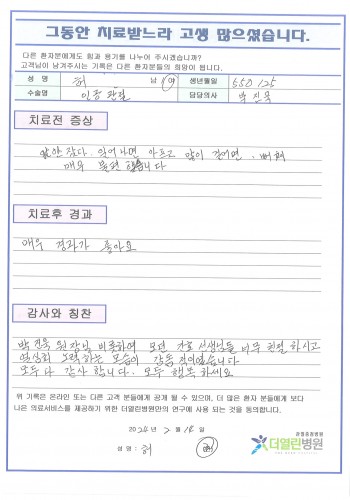 그동안 치료받느라 고생 많으셨습니다.
다른 환자분에게도 힘과 용기를 나누어 주시겠습니까?
고객님이 남겨주시는 기록은 다른 환자분들의 희망이 됩니다.
성 명 허 남 여 생년월일 550125
수술명 인공관절 담당의사 박진욱
치료전 증상
앉았다. 일어나면 아프고 많이 걸어면.
매우 불편 했습니다
치료후 경과
매우 경과가 좋아요
감사와 칭찬
박진욱 원장님 비롯하여 모던 간호 선생님들 너무 친절 하시고
열심히 노력하는 모습이 감동적이였습니다
모두다 감사 합니다. 모두 행복 하세요
위 기록은 온라인 또는 다른 고객 분들에게 공개 될 수 있으며, 더 많은 환자 분들에게 보다
나은 의료서비스를 제공하기 위한 더열린병원만의 연구에 사용 되는 것을 동의합니다.
2024년 7월 18일
성 명 : 허
관절중점병원
더열린병원